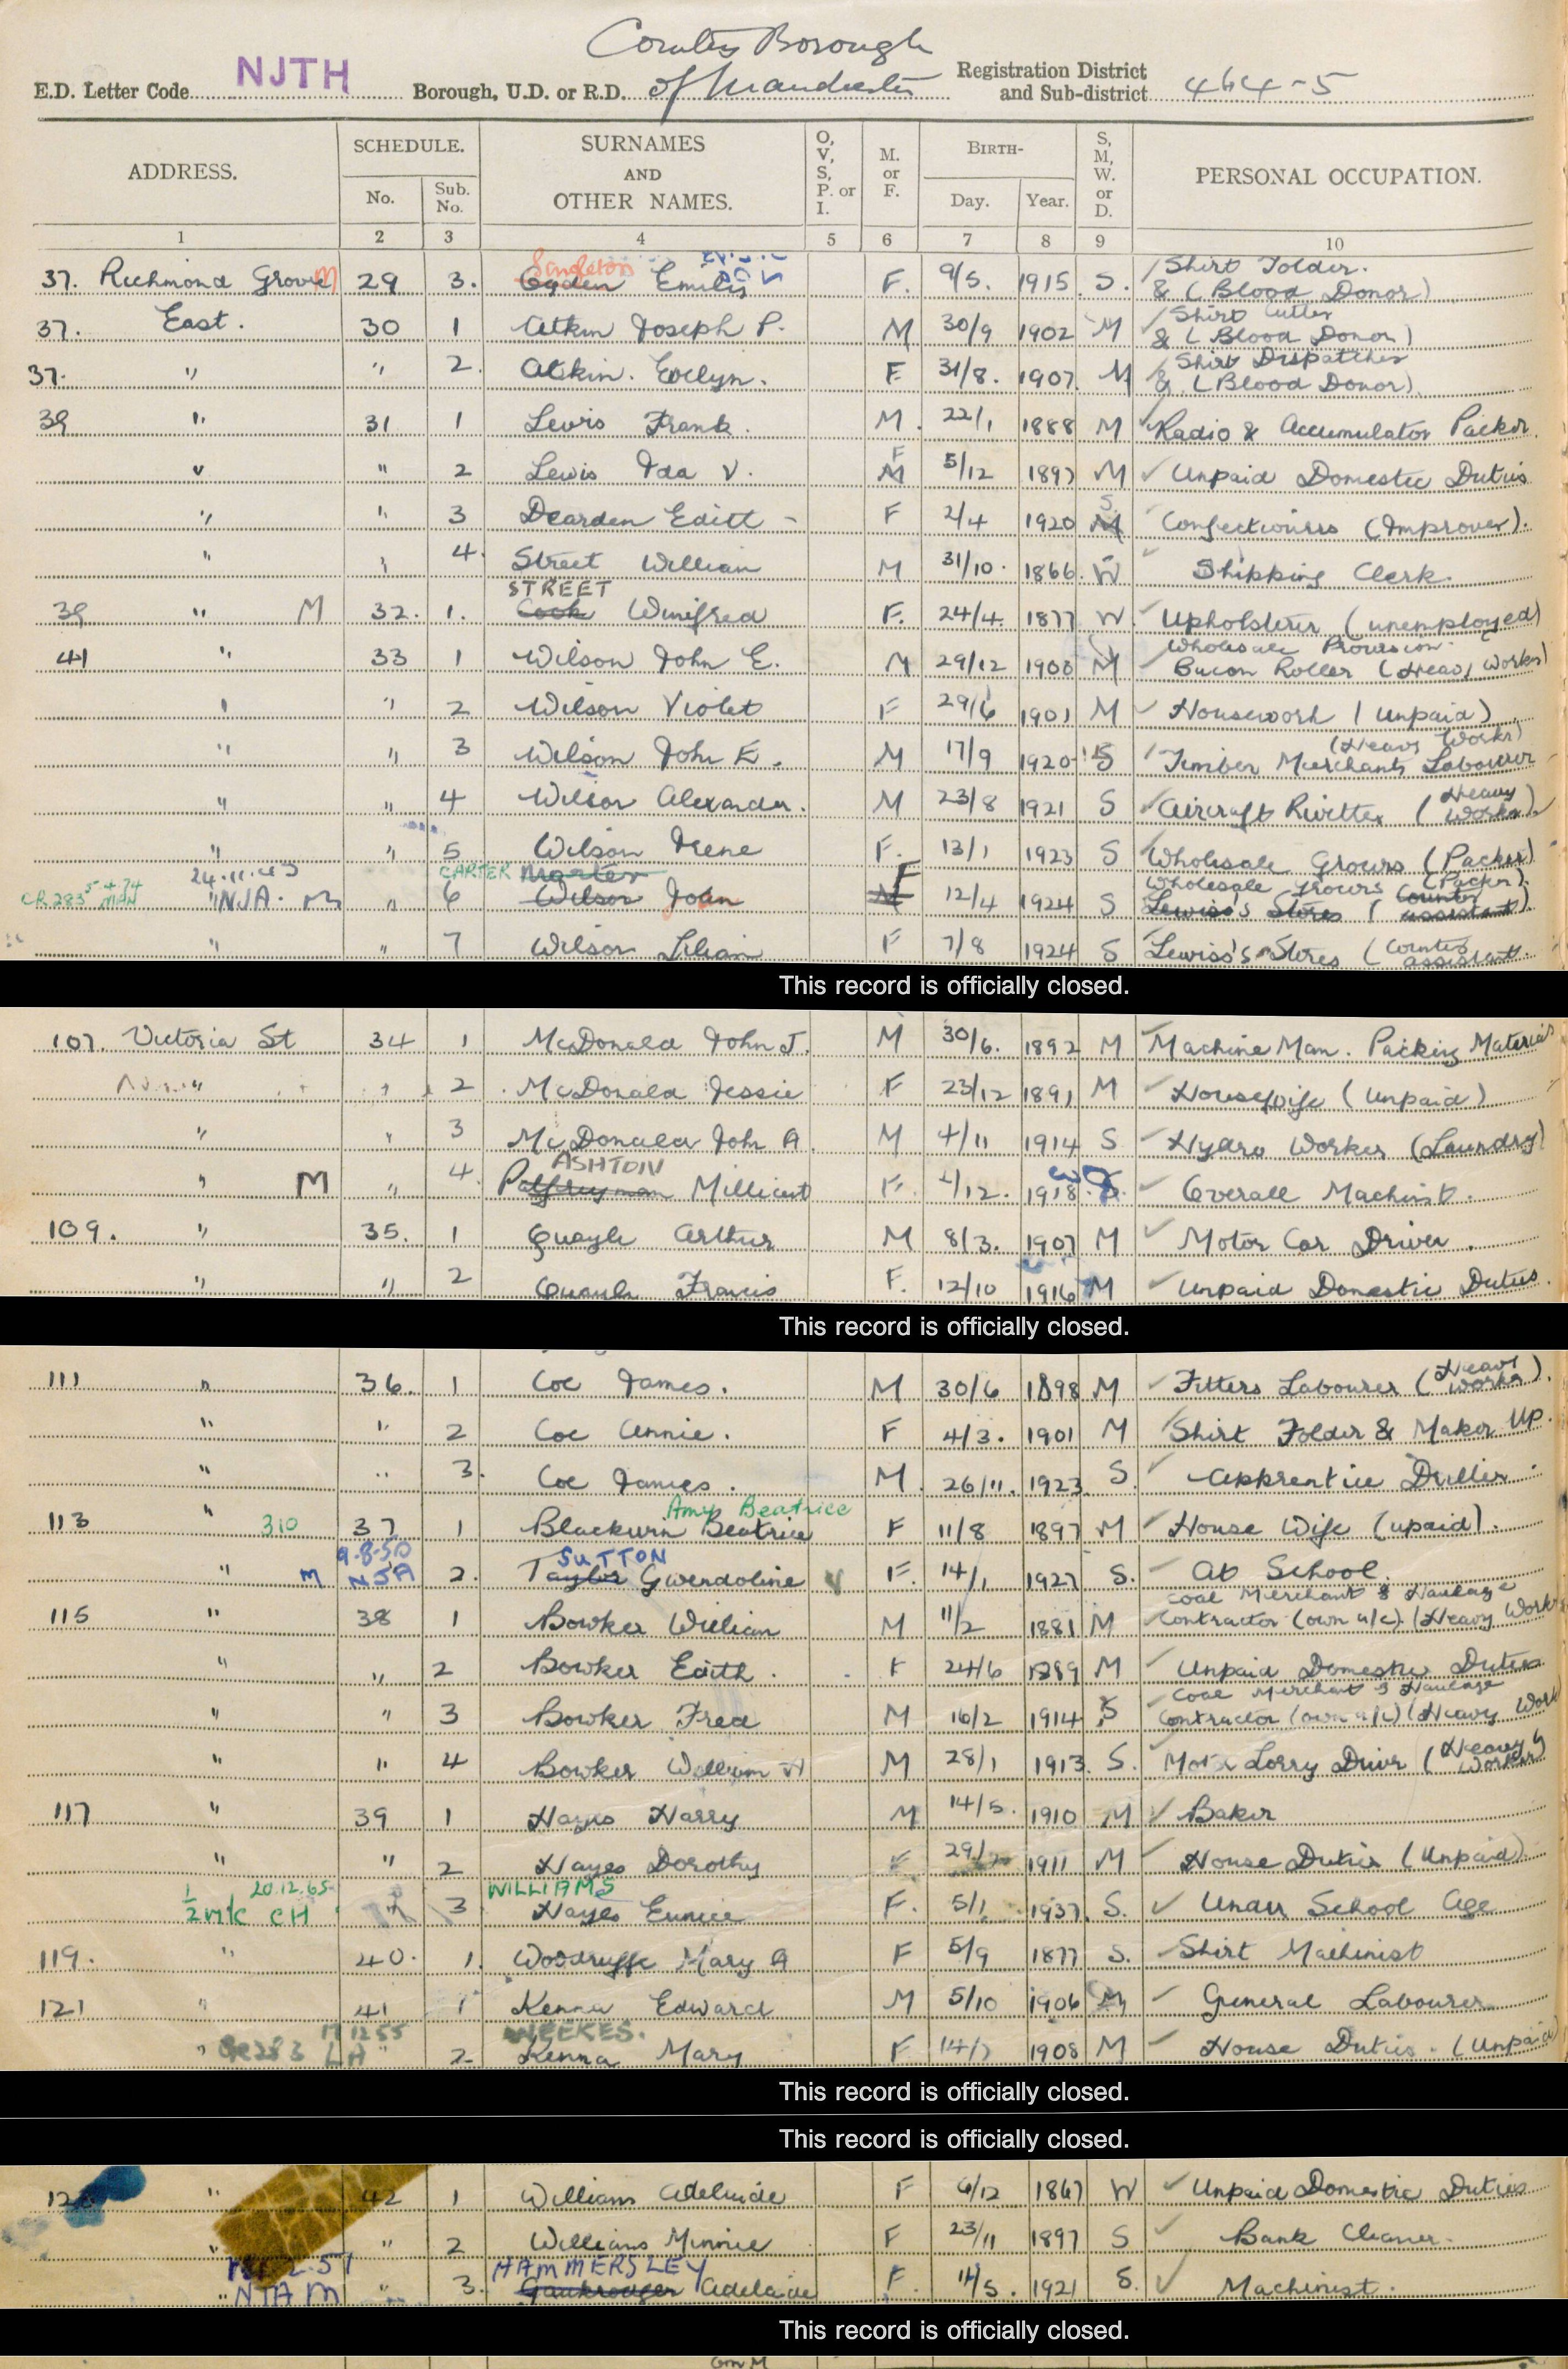 County Borough
E.D. Letter Code NJTH Borough, U.D. or R.D. of Manchester Registration District and Sub-district 464-5
ADDRESS. SCHEDULE. No. Sub. No. SURNAMES AND OTHER NAMES. O, V, S, P. or I. M. or F. BIRTH- Day. Year. S, M, W. or D. PERSONAL OCCUPATION.
1 2 3 4 5 6 7 8 9 10
Singleton
37. Richmond Grove M 29 3. Ogden Emily F. 9/5. 1915. S. Shirt Folder. & (Blood Donor)
37. East. 30 1 Atkin Joseph P. M 30/9 1902 M Shirt Cutter & (Blood Donor)
37. " " 2. Atkin. Evelyn. F 31/8. 1907. M Shirt Dispatcher & (Blood Donor)
39 " 31 1 Lewis Frank. M. 22/1 1888 M Radio & Accumulator Packer.
" " 2 Lewis Ida V. M F 5/12 1897 M Unpaid Domestic Duties
" " 3 Dearden Edith - F 2/4 1920 M S Confectioners (Improver).
" " 4. Street William M 31/10. 1866. W Shipping Clerk.
STREET
39 " M 32. 1. Cook Winifred F. 24/4. 1877 W. Upholsterer (unemployed)
41 " 33 1 Wilson John E. M 29/12 1900 M Wholesale Provision Bacon Roller (Heavy Works)
" " 2 Wilson Violet F 29/6 1901 M Housework (Unpaid)
" " 3 Wilson John E. M 17/9 1920 S Timber Merchants Labourer (Heavy Works)
" " 4 Wilson Alexander. M 23/8 1921 S Aircraft Rivetter (Heavy Works)
" " 5 Wilson Irene F. 13/1 1923 S Wholesale Grocers (Packer)
24.11.43 CARTER
CR 283 5.4.74 MAN " NJA. M " 6 Wilson Joan M F 12/4 1924 S Wholesale Grocers (Packer). Lewiss's Stores (Counter assistant).
" " 7 Wilson Lilian F 7/8 1924 S Lewiss's Stores (Counter assistant.
This record is officially closed.
107. Victoria St 34 1 McDonald John J. M 30/6. 1892 M Machine Man. Packing Materials
" " 2 McDonald Jessie F 23/12 1891 M Housewife (Unpaid)
" " 3 McDonald John A. M 4/11 1914 S Hydro Worker (Laundry)
ASHTON
" M " 4. Palfreyman Millicent F. /12. 1918. S. Overall Machinist.
109. " 35. 1 Quayle Arthur M 8/3. 1907 M Motor Car Driver.
" " 2 Quayle Francis F. 12/10 1916 M Unpaid Domestic Duties.
This record is officially closed.
111 " 36. 1 Coe James. M 30/6 1898 M Fitters Labourer (Heavy works).
" " 2 Coe Annie. F 4/3. 1901 M Shirt Folder & Maker Up.
" " 3. Coe James. M. 26/11. 1923. S. Apprentice Driller.
Amy Beatrice
113 " 310 37 1 Blackwin Beatrice F 11/8 1897 M House Wife (upaid).
9-8-50 SUTTON
" M NJA 2. Taylor Gwendoline F. 14/1 1927 S. At School.
115 " 38 1 Bowker William M 11/2 1881 M Coal Merchant & Haulage Contractor (own a/c) (Heavy Work
" " 2 Bowker Edith. F 24/6 1889 M Unpaid Domestic Duties.
" " 3 Bowker Fred M 16/2 1914 S Coal Merchant & Haulage Contractor (own a/c) (Heavy Work
" " 4 Bowker William H M 28/1 1913. S. Motor Lorry Driver (Heavy Worker)
117 " 39 1 Hayes Harry M 14/5. 1910 M Baker
" " 2 Hayes Dorothy F 29/ 1911 M House Duties (Unpaid)
20.12.65 WILLIAMS
CH " 3 Hayes Eunice F. 5/1 1937. S. Under School Age
119. " 40. 1. Woodruffe Mary A F 5/9 1877 S. Shirt Machinist
121 " 41 1 Kenna Edward M 5/10 1906 M General Labourer
12 55 WEEKES.
" CR283 LA " 2 Kenna Mary F 14/7 1908 M House Duties. (Unpaid)
This record is officially closed.
This record is officially closed.
" 42 1 Williams Adelaide F 6/12 1867 W Unpaid Domestic Duties
" " 2 Williams Minnie F 23/11 1897 S Bank Cleaner.
2.51 HAMMERSLEY
" NJA M " 3. Gaukroger Adelaide F. 11/5. 1921 S. Machinist.
This record is officially closed.